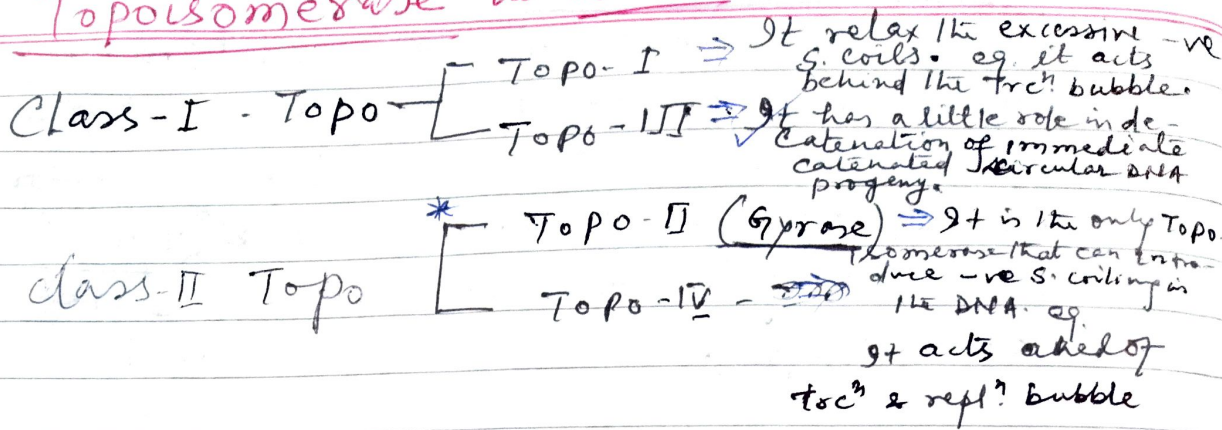 Topoisomerase
Class-I . Topo
Topo-I ⇒ It relax the excessive -ve
S. coils. eg. it acts
behind the trcⁿ bubble.
Topo-III ⇒ It has a little role in de-
catenation of immediate
catenated circular DNA
progeny.
* Topo-II (Gyrase) ⇒ It is the only Topo-
isomerase that can intro-
duce -ve S. coiling in
the DNA. eg.
It acts ahed of
trcⁿ & replⁿ bubble
class-II Topo
Topo-IV -